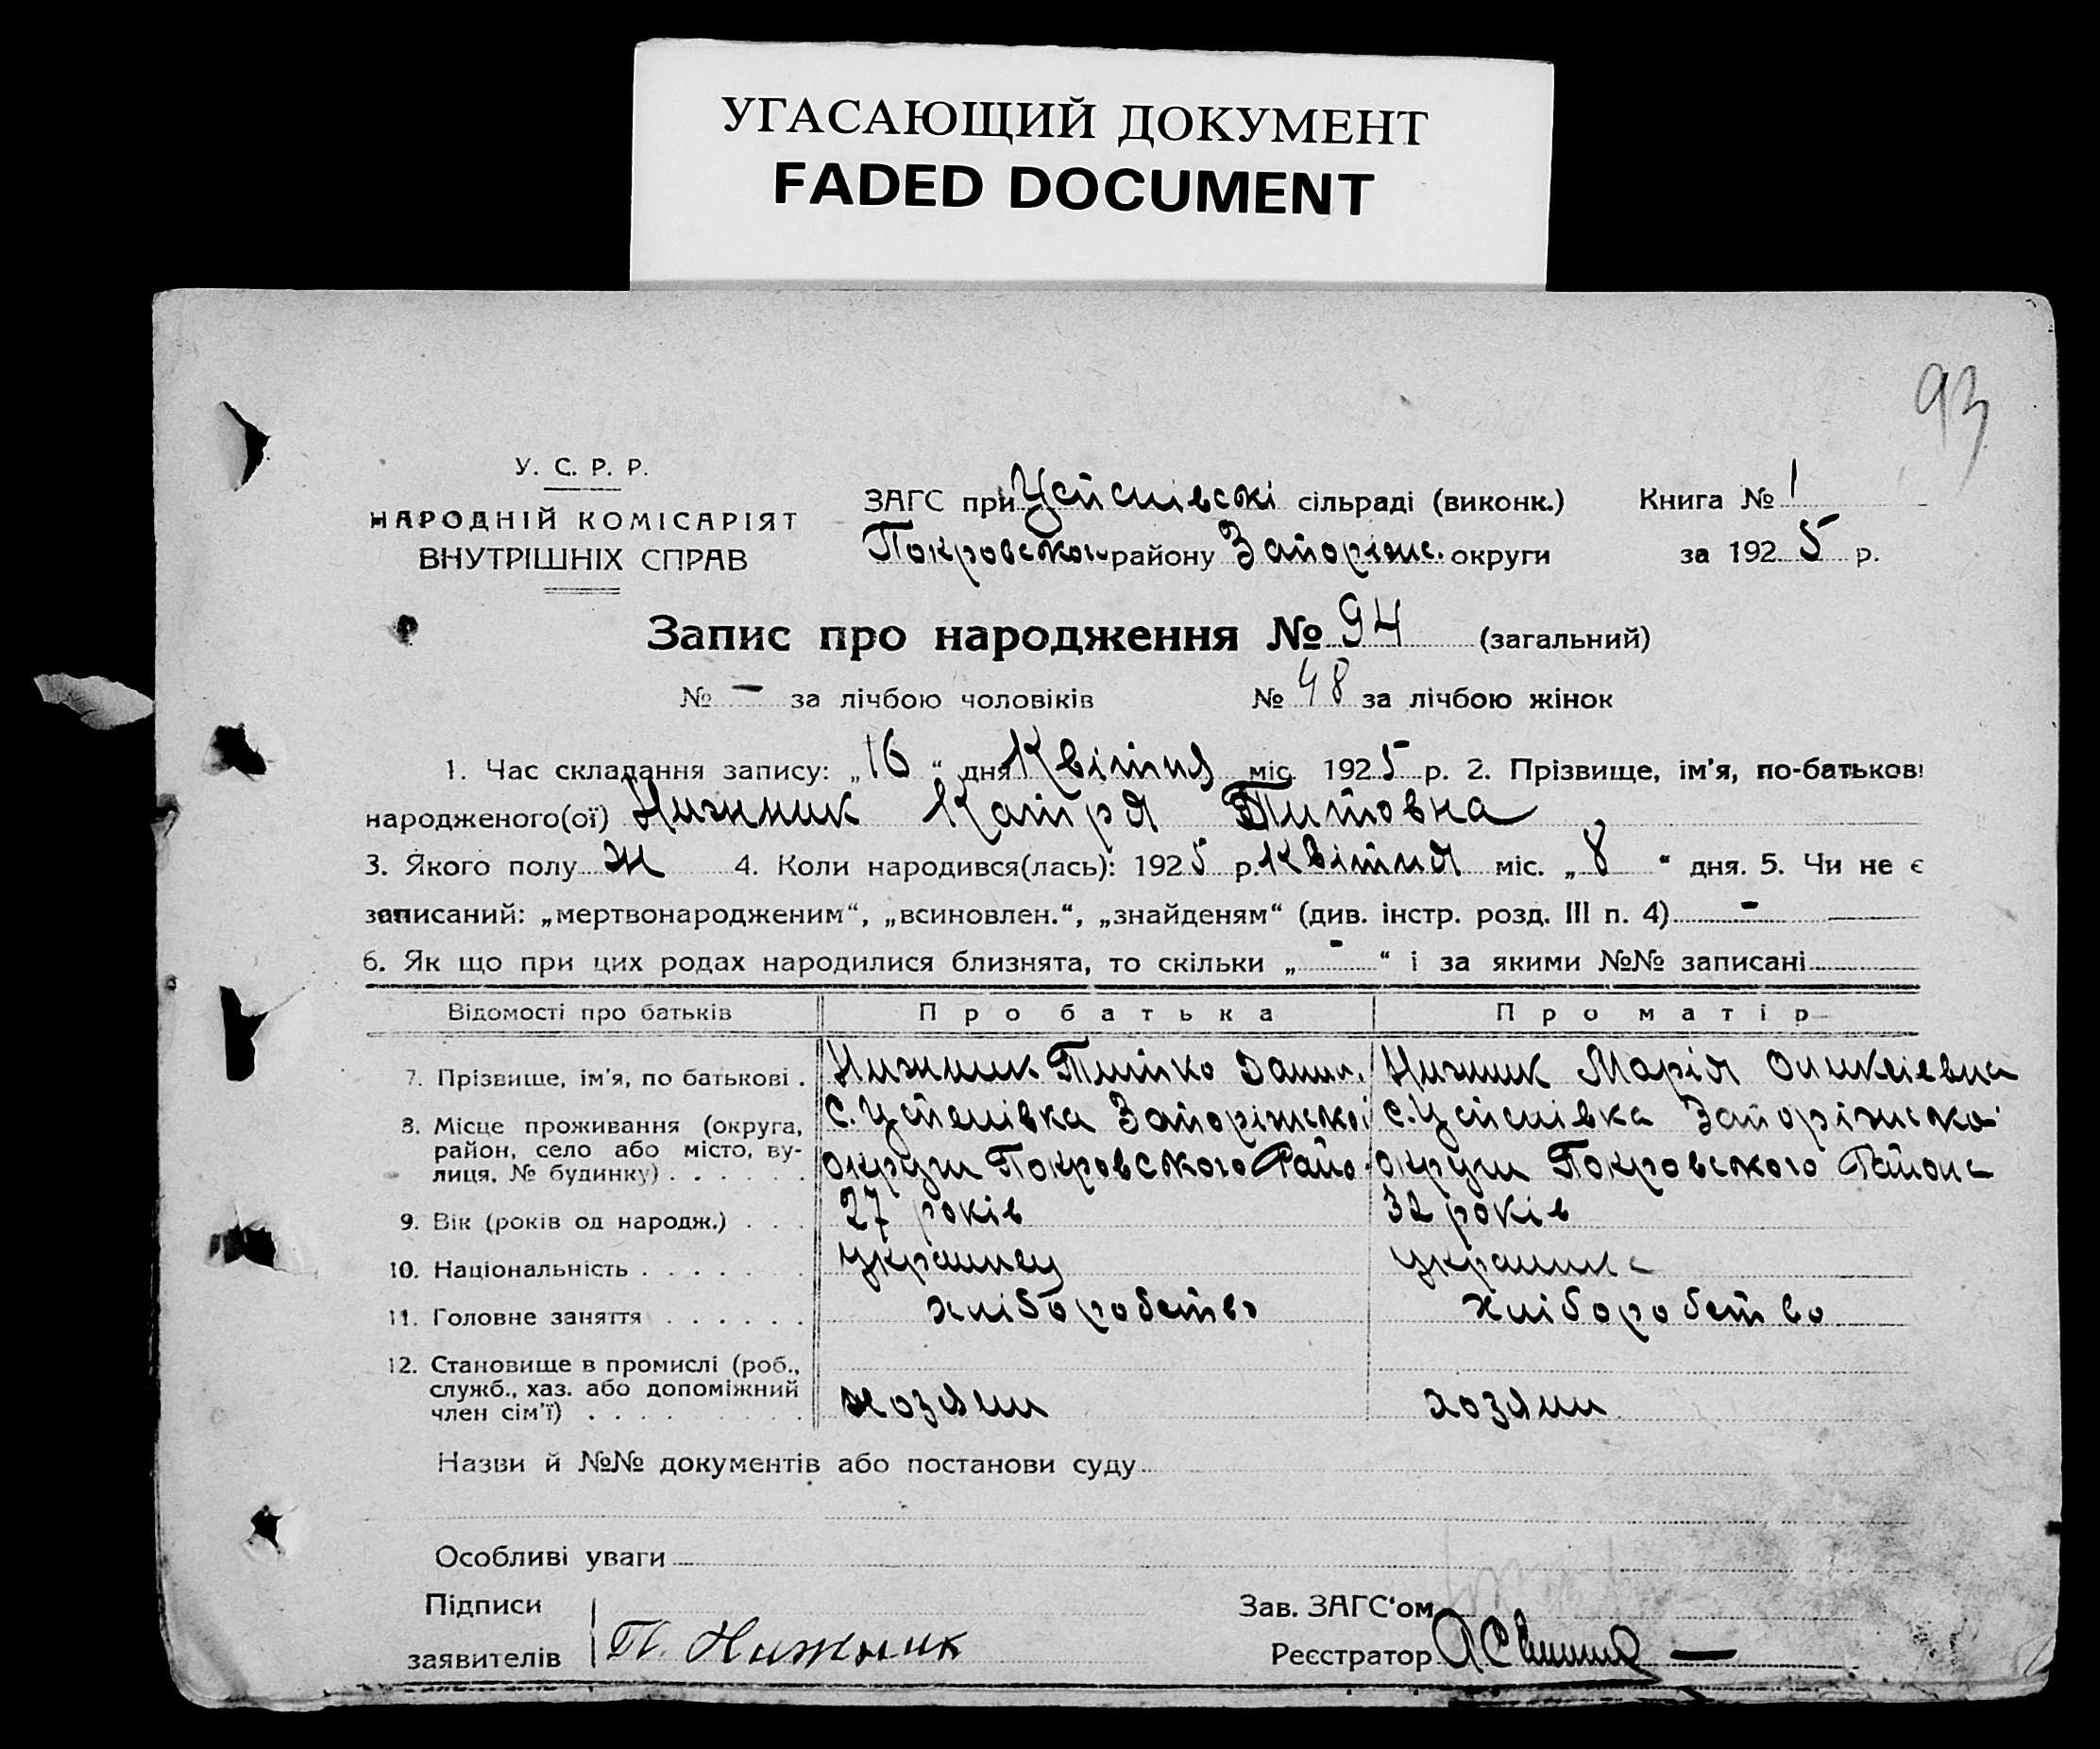 УГАСАЮЩИЙ ДОКУМЕНТ
FADED DOCUMENT
93
У. С. Р. Р.
НАРОДНІЙ КОМІСАРІЯТ
ВНУТРІШНІХ СПРАВ
ЗАГС при сільраді (виконк.)
Покровського району Запоріжс. округи
Книга № 1
за 1925 р.
Запис про народження № 94 (загальний)
№ - за лічбою чоловіків № 48 за лічбою жінок
1. Час складання запису: „16“ дня Квітня міс. 1925 р. 2. Прізвище, ім'я, по-батькові
народженого(ої) Нижник Катря Титовна
3. Якого полу ж 4. Коли народився(лась): 1925 р. Квітня міс. „8“ дня. 5. Чи не є
записаний: „мертвонародженим“, „всиновлен.“, „знайденям“ (див. інстр. розд. III п. 4) -
6. Як що при цих родах народилися близнята, то скільки „-“ і за якими №№ записані
Відомості про батьків Про батька Про матір
7. Прізвище, ім'я, по батькові . Нижник Данил. Нижник Марія
8. Місце проживання (округа, район, село або місто, вулиця, № будинку) . . . . . .
с. Запоріжської округи Покровського Райо.
с. Запоріжско округи Покровського Района
9. Вік (років од народж.) . . . 27 років 32 років
10. Національність . . . . . . украинец украинка
11. Головне заняття . . . . . . хліборобство хліборобство
12. Становище в промислі (роб., служб., хаз. або допоміжний член сім'ї) . . . . хозяин хозяин
Назви й №№ документів або постанови суду
Особливі уваги
Підписи
заявителів Т. Нижник
Зав. ЗАГС'ом
Реєстратор